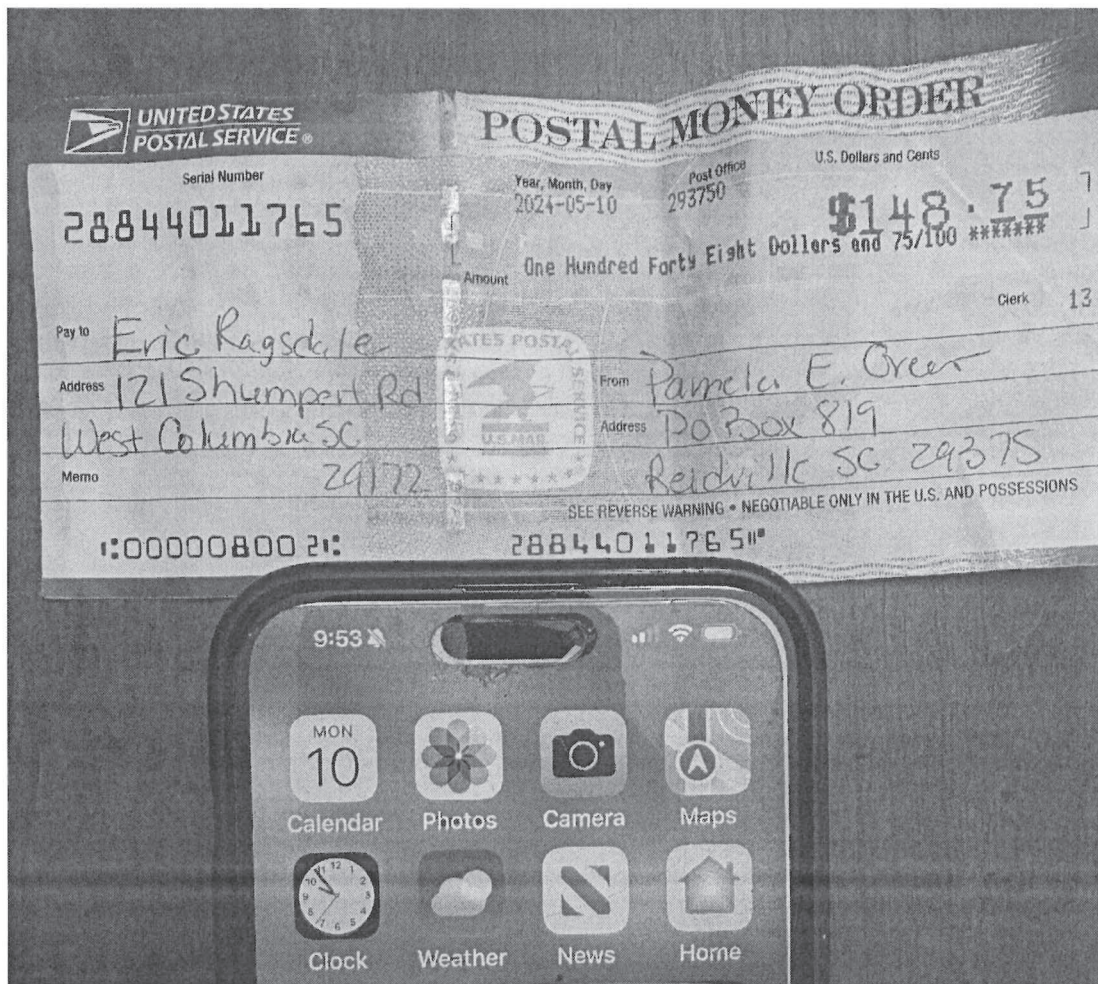 UNITED STATES
POSTAL SERVICE®
POSTAL MONEY ORDER
Serial Number
28844011765
Year, Month, Day
2024-05-10
Post Office
293750
U.S. Dollars and Cents
$148.75
Amount
One Hundred Forty Eight Dollars and 75/100 *******
Clerk 13
Pay to Eric Ragsdale
Address 121 Shumpert Rd
West Columbia SC
Memo 29172
From Pamela E. Greer
Address PO Box 819
Reidville SC 29375
SEE REVERSE WARNING • NEGOTIABLE ONLY IN THE U.S. AND POSSESSIONS
⑆000008002⑆
28844011765⑈
ATES POSTAL SERVICE
U.S.MAIL
9:53
MON
10
Calendar
Photos
Camera
Maps
Clock
Weather
News
Home